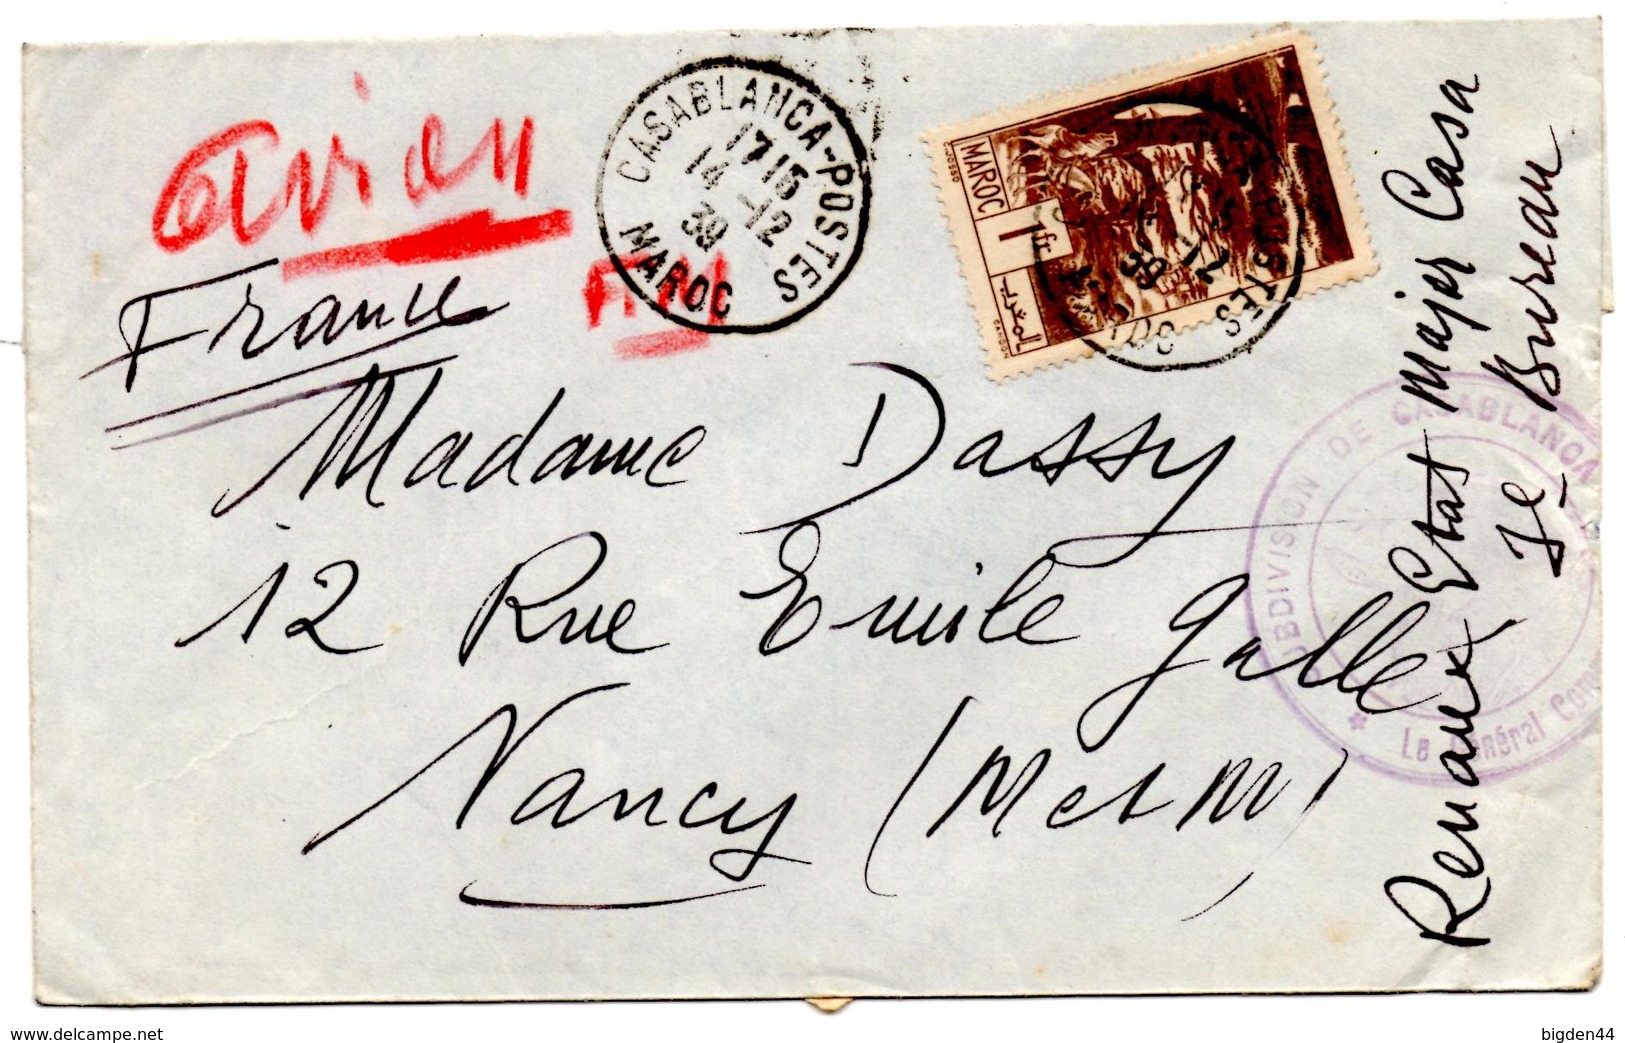 avion
France
FM
CASABLANCA-POSTES
1715
14 -12
39
MAROC
MAROC
1 fr
المغرب
POSTES
12
39
Madame Dassy
12 Rue Emile Gallé
Nancy (M et M)
Renaux Etat Major Casa
Bureau
SUBDIVISION DE CASABLANCA
* Le Général Com
www.delcampe.net
bigden44